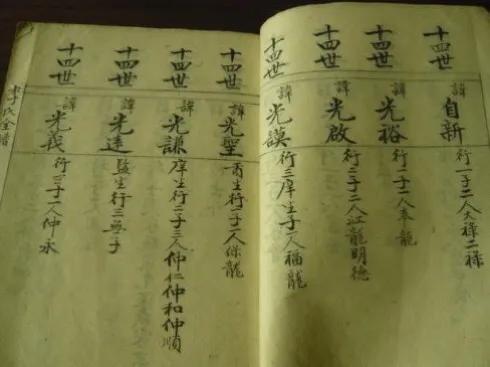 十四世 諱 自新 行一子二人大祿二祿
十四世 諱 光裕 行一子人奉龍
十四世 諱 光啟 行二子二人江龍明德
十四世 諱 光謨 行三庠生子一人福龍
十四世 諱 光聖 生行二子一人保龍
十四世 諱 光謙 庠生行二子三人仲仁仲和仲順
十四世 諱 光遠 監生行三無子
十四世 諱 光義 行三子人仲永
李氏全譜